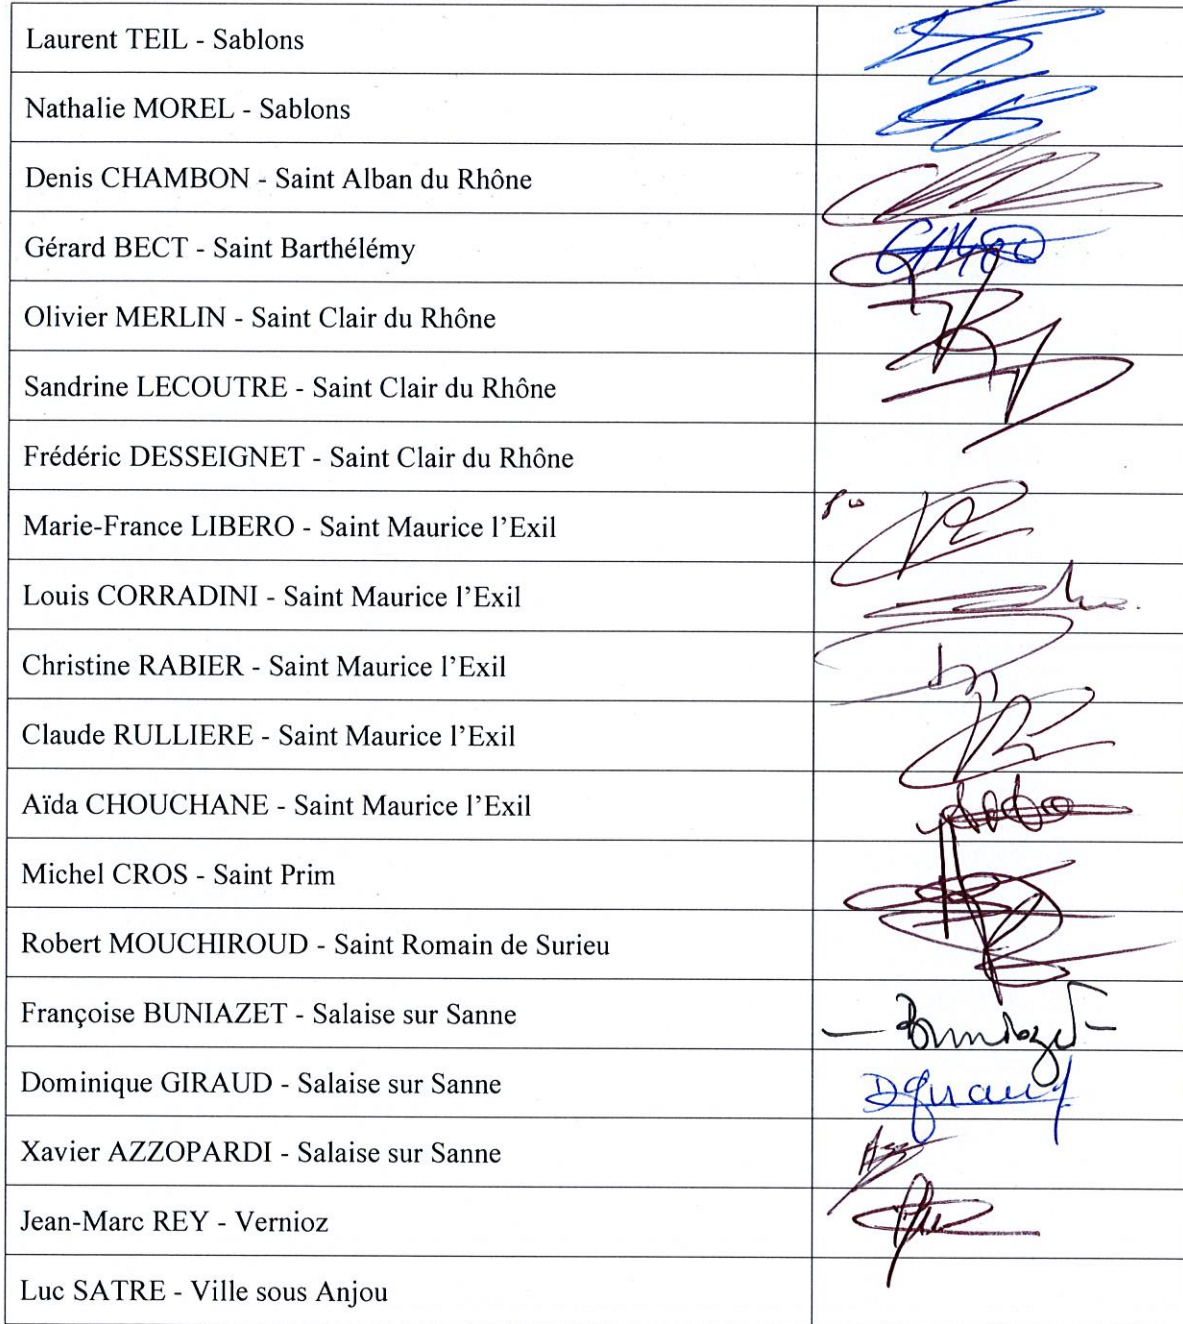 Laurent TEIL - Sablons
Nathalie MOREL - Sablons
Denis CHAMBON - Saint Alban du Rhône
Gérard BECT - Saint Barthélémy
Olivier MERLIN - Saint Clair du Rhône
Sandrine LECOUTRE - Saint Clair du Rhône
Frédéric DESSEIGNET - Saint Clair du Rhône
Marie-France LIBERO - Saint Maurice l'Exil
Louis CORRADINI - Saint Maurice l'Exil
Christine RABIER - Saint Maurice l'Exil
Claude RULLIERE - Saint Maurice l'Exil
Aïda CHOUCHANE - Saint Maurice l'Exil
Michel CROS - Saint Prim
Robert MOUCHIROUD - Saint Romain de Surieu
Françoise BUNIAZET - Salaise sur Sanne
Dominique GIRAUD - Salaise sur Sanne
DGiraud
Xavier AZZOPARDI - Salaise sur Sanne
Jean-Marc REY - Vernioz
Luc SATRE - Ville sous Anjou